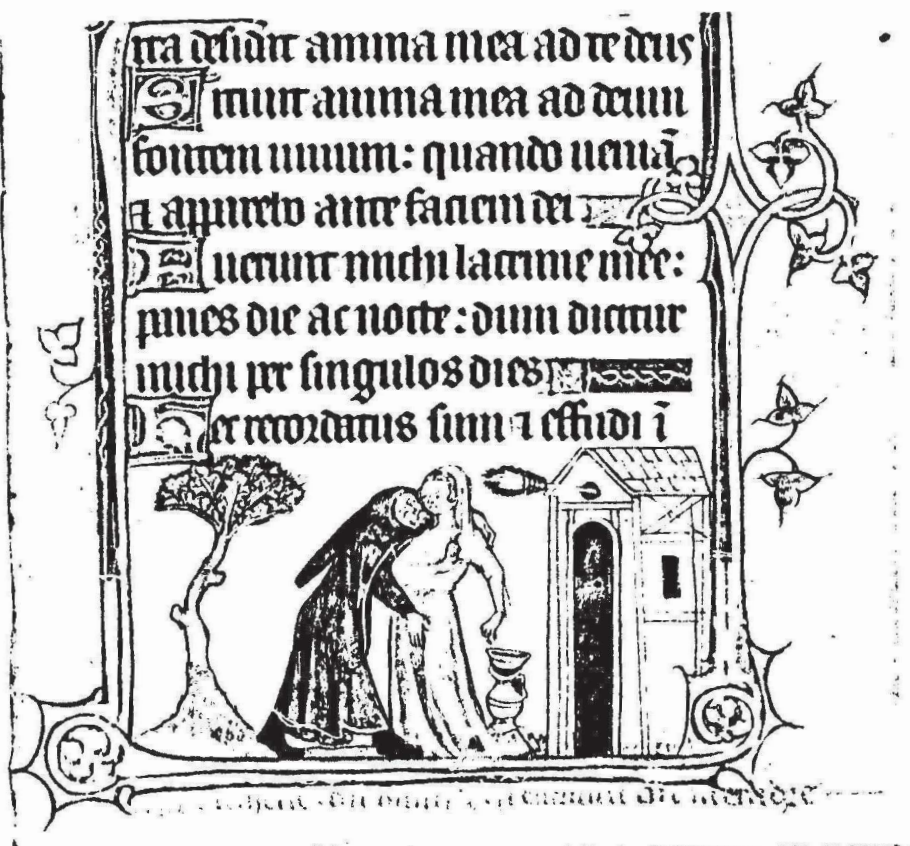 ita desid't anima mea ad te deus
Sitiuit anima mea ad deum
fontem uiuum: quando ueniā
⁊ apparebo ante faciem dei
Fuerunt michi lacrime mee:
panes die ac nocte: dum dicitur
michi per singulos dies
Hec recordatus sum ⁊ effudi ī